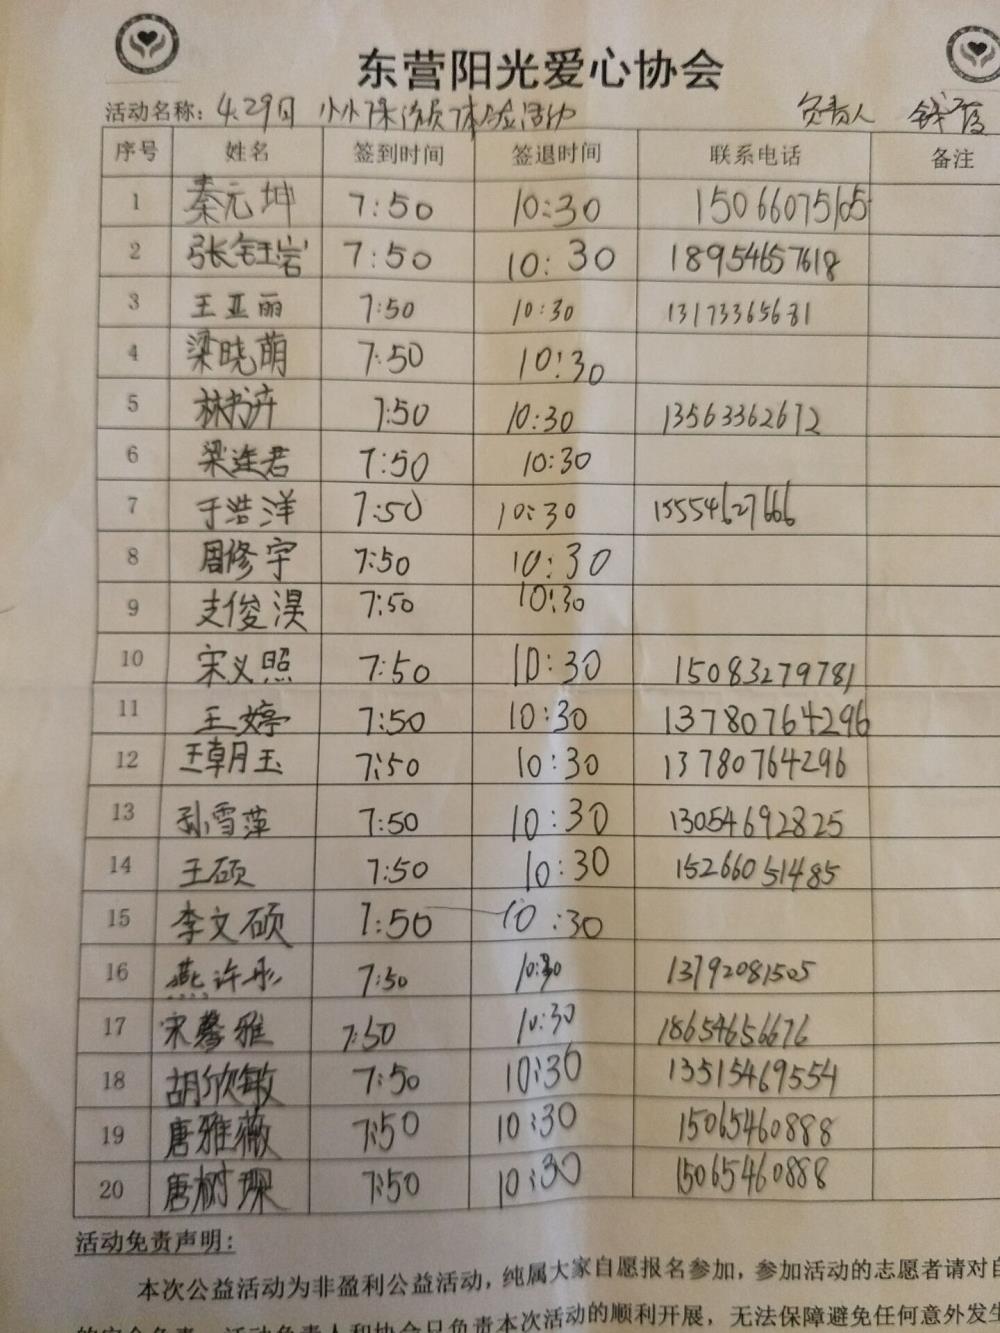 东营阳光爱心协会
活动名称：4.29日 小小保洁员体验活动 负责人
序号 姓名 签到时间 签退时间 联系电话 备注
1 秦元坤 7:50 10:30 15066075105
2 张钰岩 7:50 10:30 18954657618
3 王亚丽 7:50 10:30 13173365681
4 梁晓萌 7:50 10:30
5 林书卉 7:50 10:30 13563362672
6 梁连君 7:50 10:30
7 于浩洋 7:50 10:30 15554627666
8 周修宇 7:50 10:30
9 支俊淏 7:50 10:30
10 宋义照 7:50 10:30 15083279781
11 王婷 7:50 10:30 13780764296
12 王朝玉 7:50 10:30 13780764296
13 孙雪萍 7:50 10:30 13054692825
14 王硕 7:50 10:30 15266051485
15 李文硕 7:50 10:30
16 燕许彤 7:50 10:30 13792081505
17 宋馨雅 7:50 10:30 18654656676
18 胡欣敏 7:50 10:30 13515469554
19 唐雅薇 7:50 10:30 15065460888
20 唐树琛 7:50 10:30 15065460888
活动免责声明：
本次公益活动为非盈利公益活动，纯属大家自愿报名参加，参加活动的志愿者请对自
的安全负责，活动负责人和协会只负责本次活动的顺利开展，无法保障避免任何意外发生